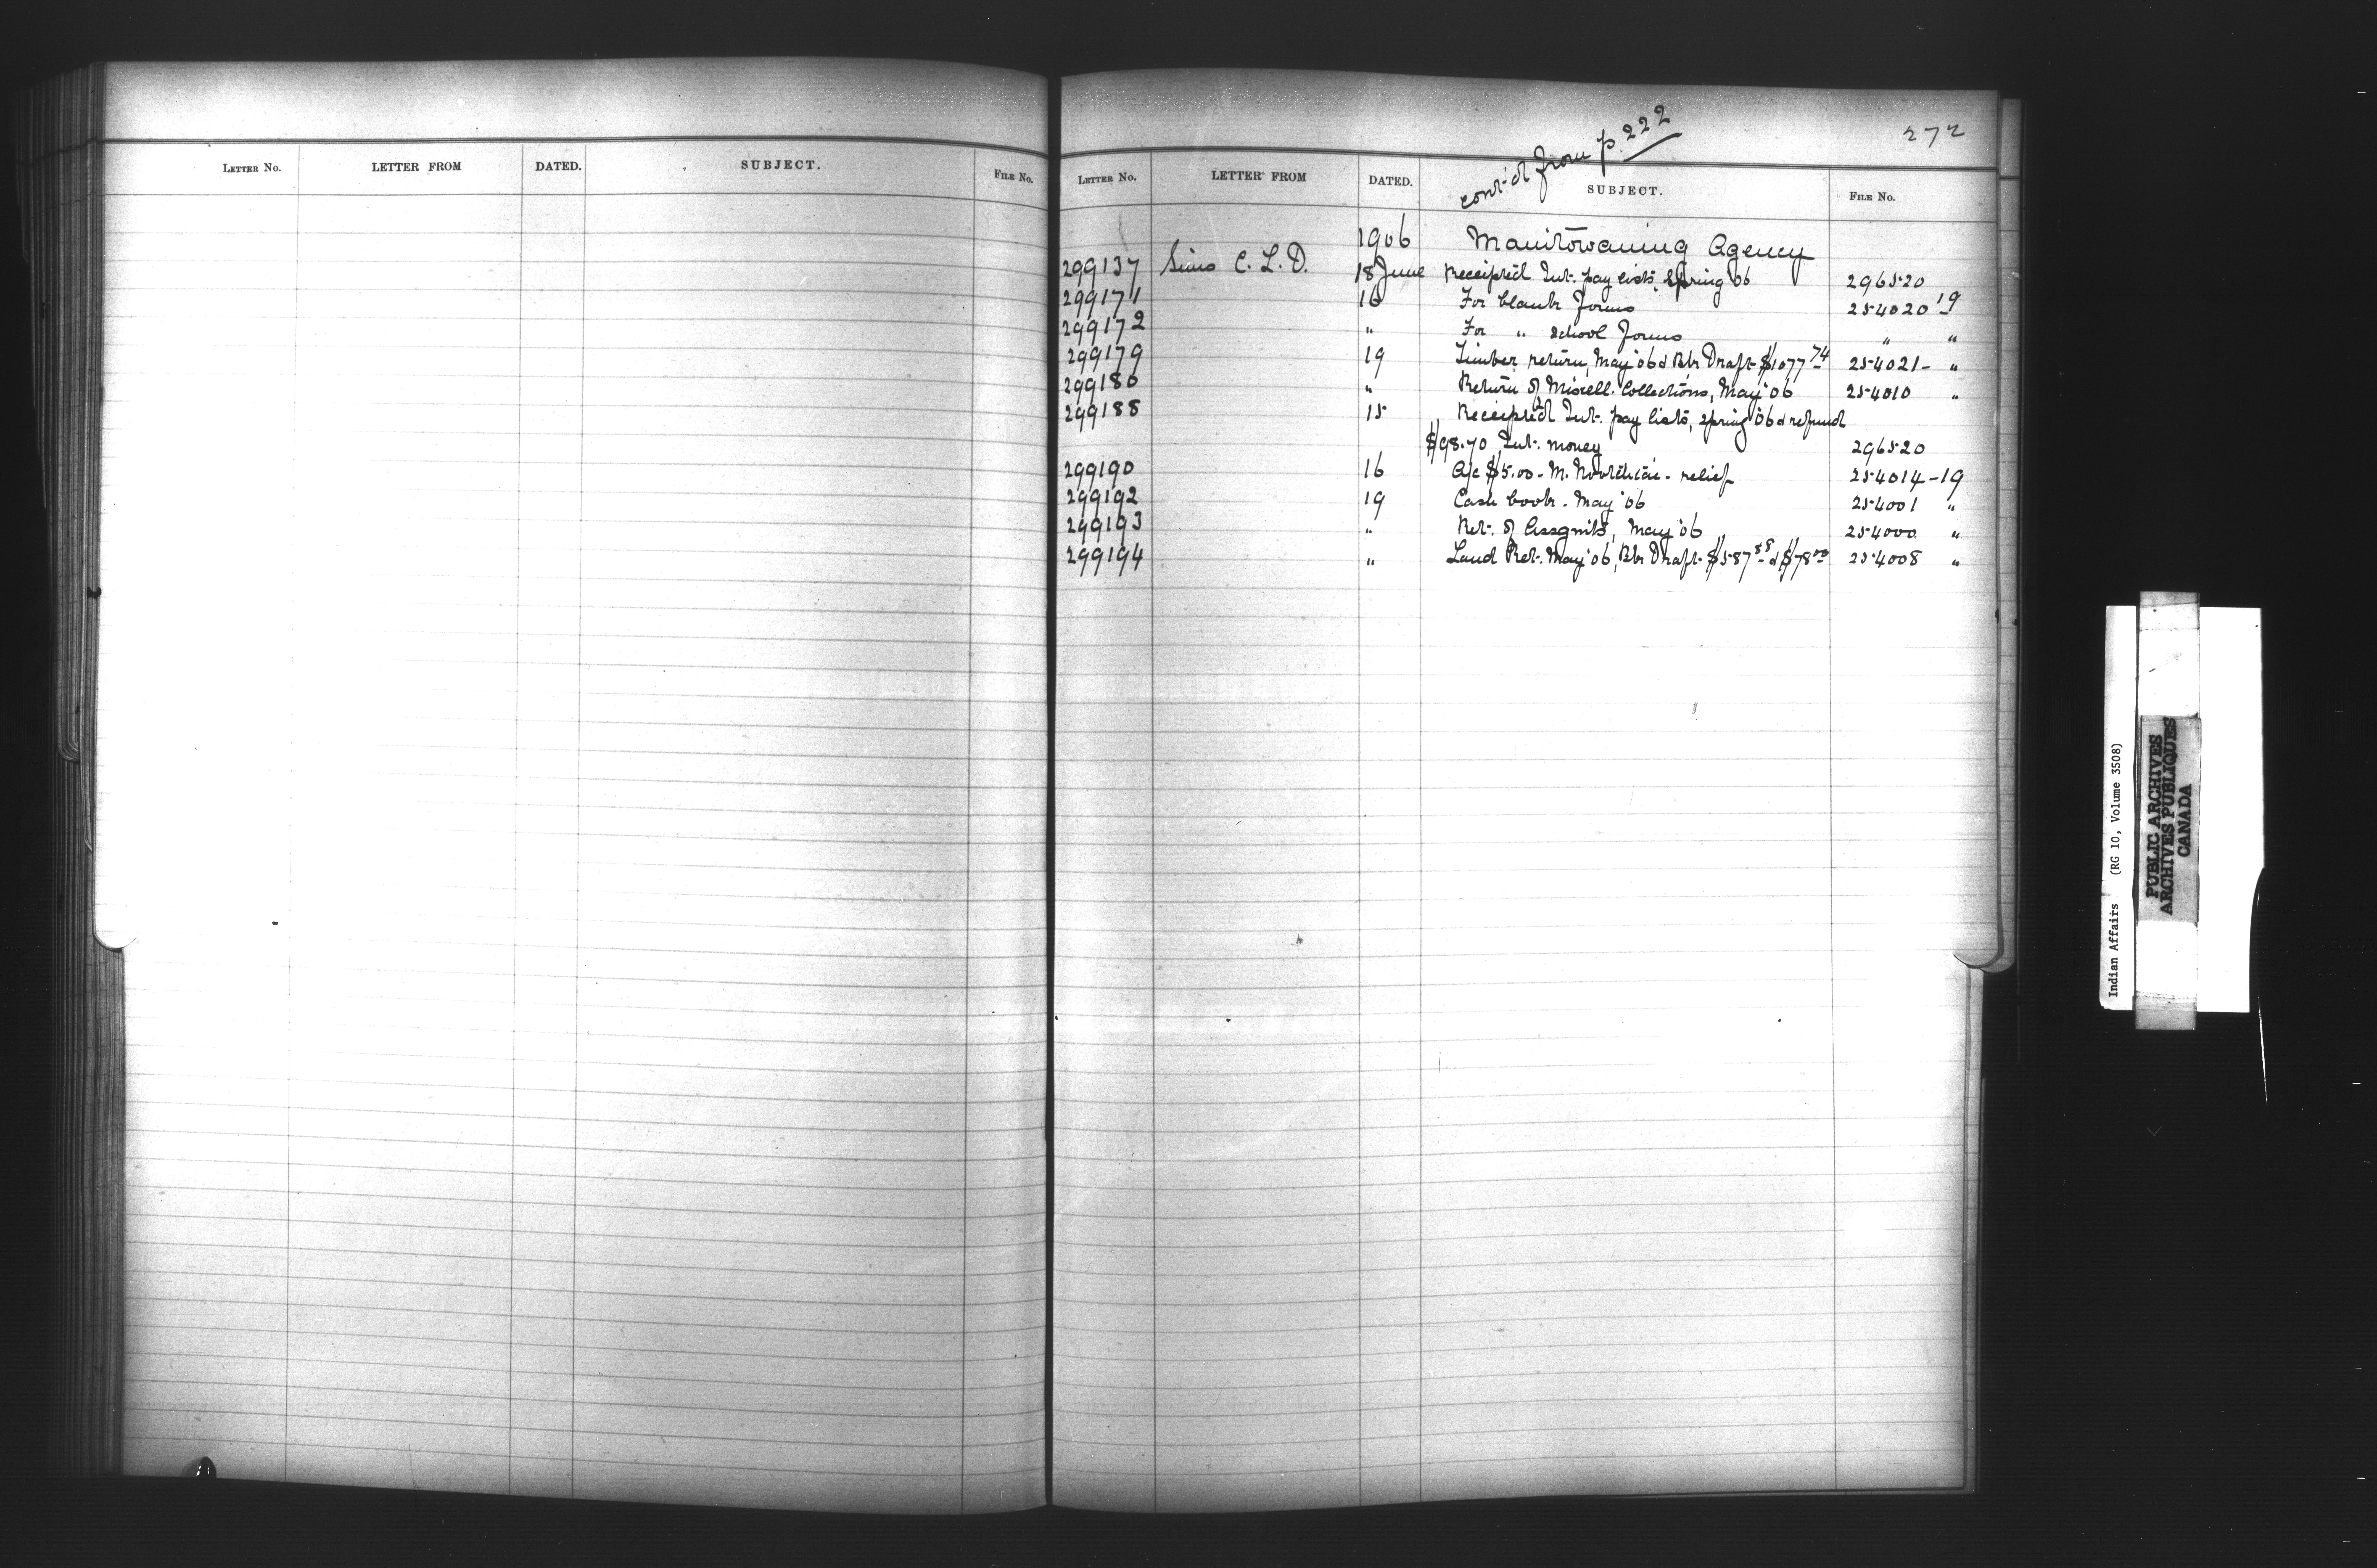 LETTER No. LETTER FROM DATED. SUBJECT. FILE No.
cont'd from p. 222
272
LETTER No. LETTER FROM DATED. SUBJECT. FILE No.
1906 Manitowaning Agency
299137 Sims C. L. D. 18 June Receipted Int. pay lists, Spring '06 296520
299171 16 For blank forms 254020-19
299172 " For " School Forms " "
299179 19 Timber return, May '06 & Bk Draft $1077.74 254021- "
299180 " Return of Miscell. Collections, May '06 254010 "
299188 15 Receipted Int. pay lists, spring '06 & refund
$98.70 Int. money 296520
299190 16 a/c $5.00 - M. - relief 254014-19
299192 19 Cash book - May '06 254001 "
299193 " Ret. of Assgnts, May '06 254000 "
299194 " Land Ret. May '06, Bk Draft $587.88 & $78.00 254008 "
Indian Affairs (RG 10, Volume 3508)
PUBLIC ARCHIVES
ARCHIVES PUBLIQUES
CANADA